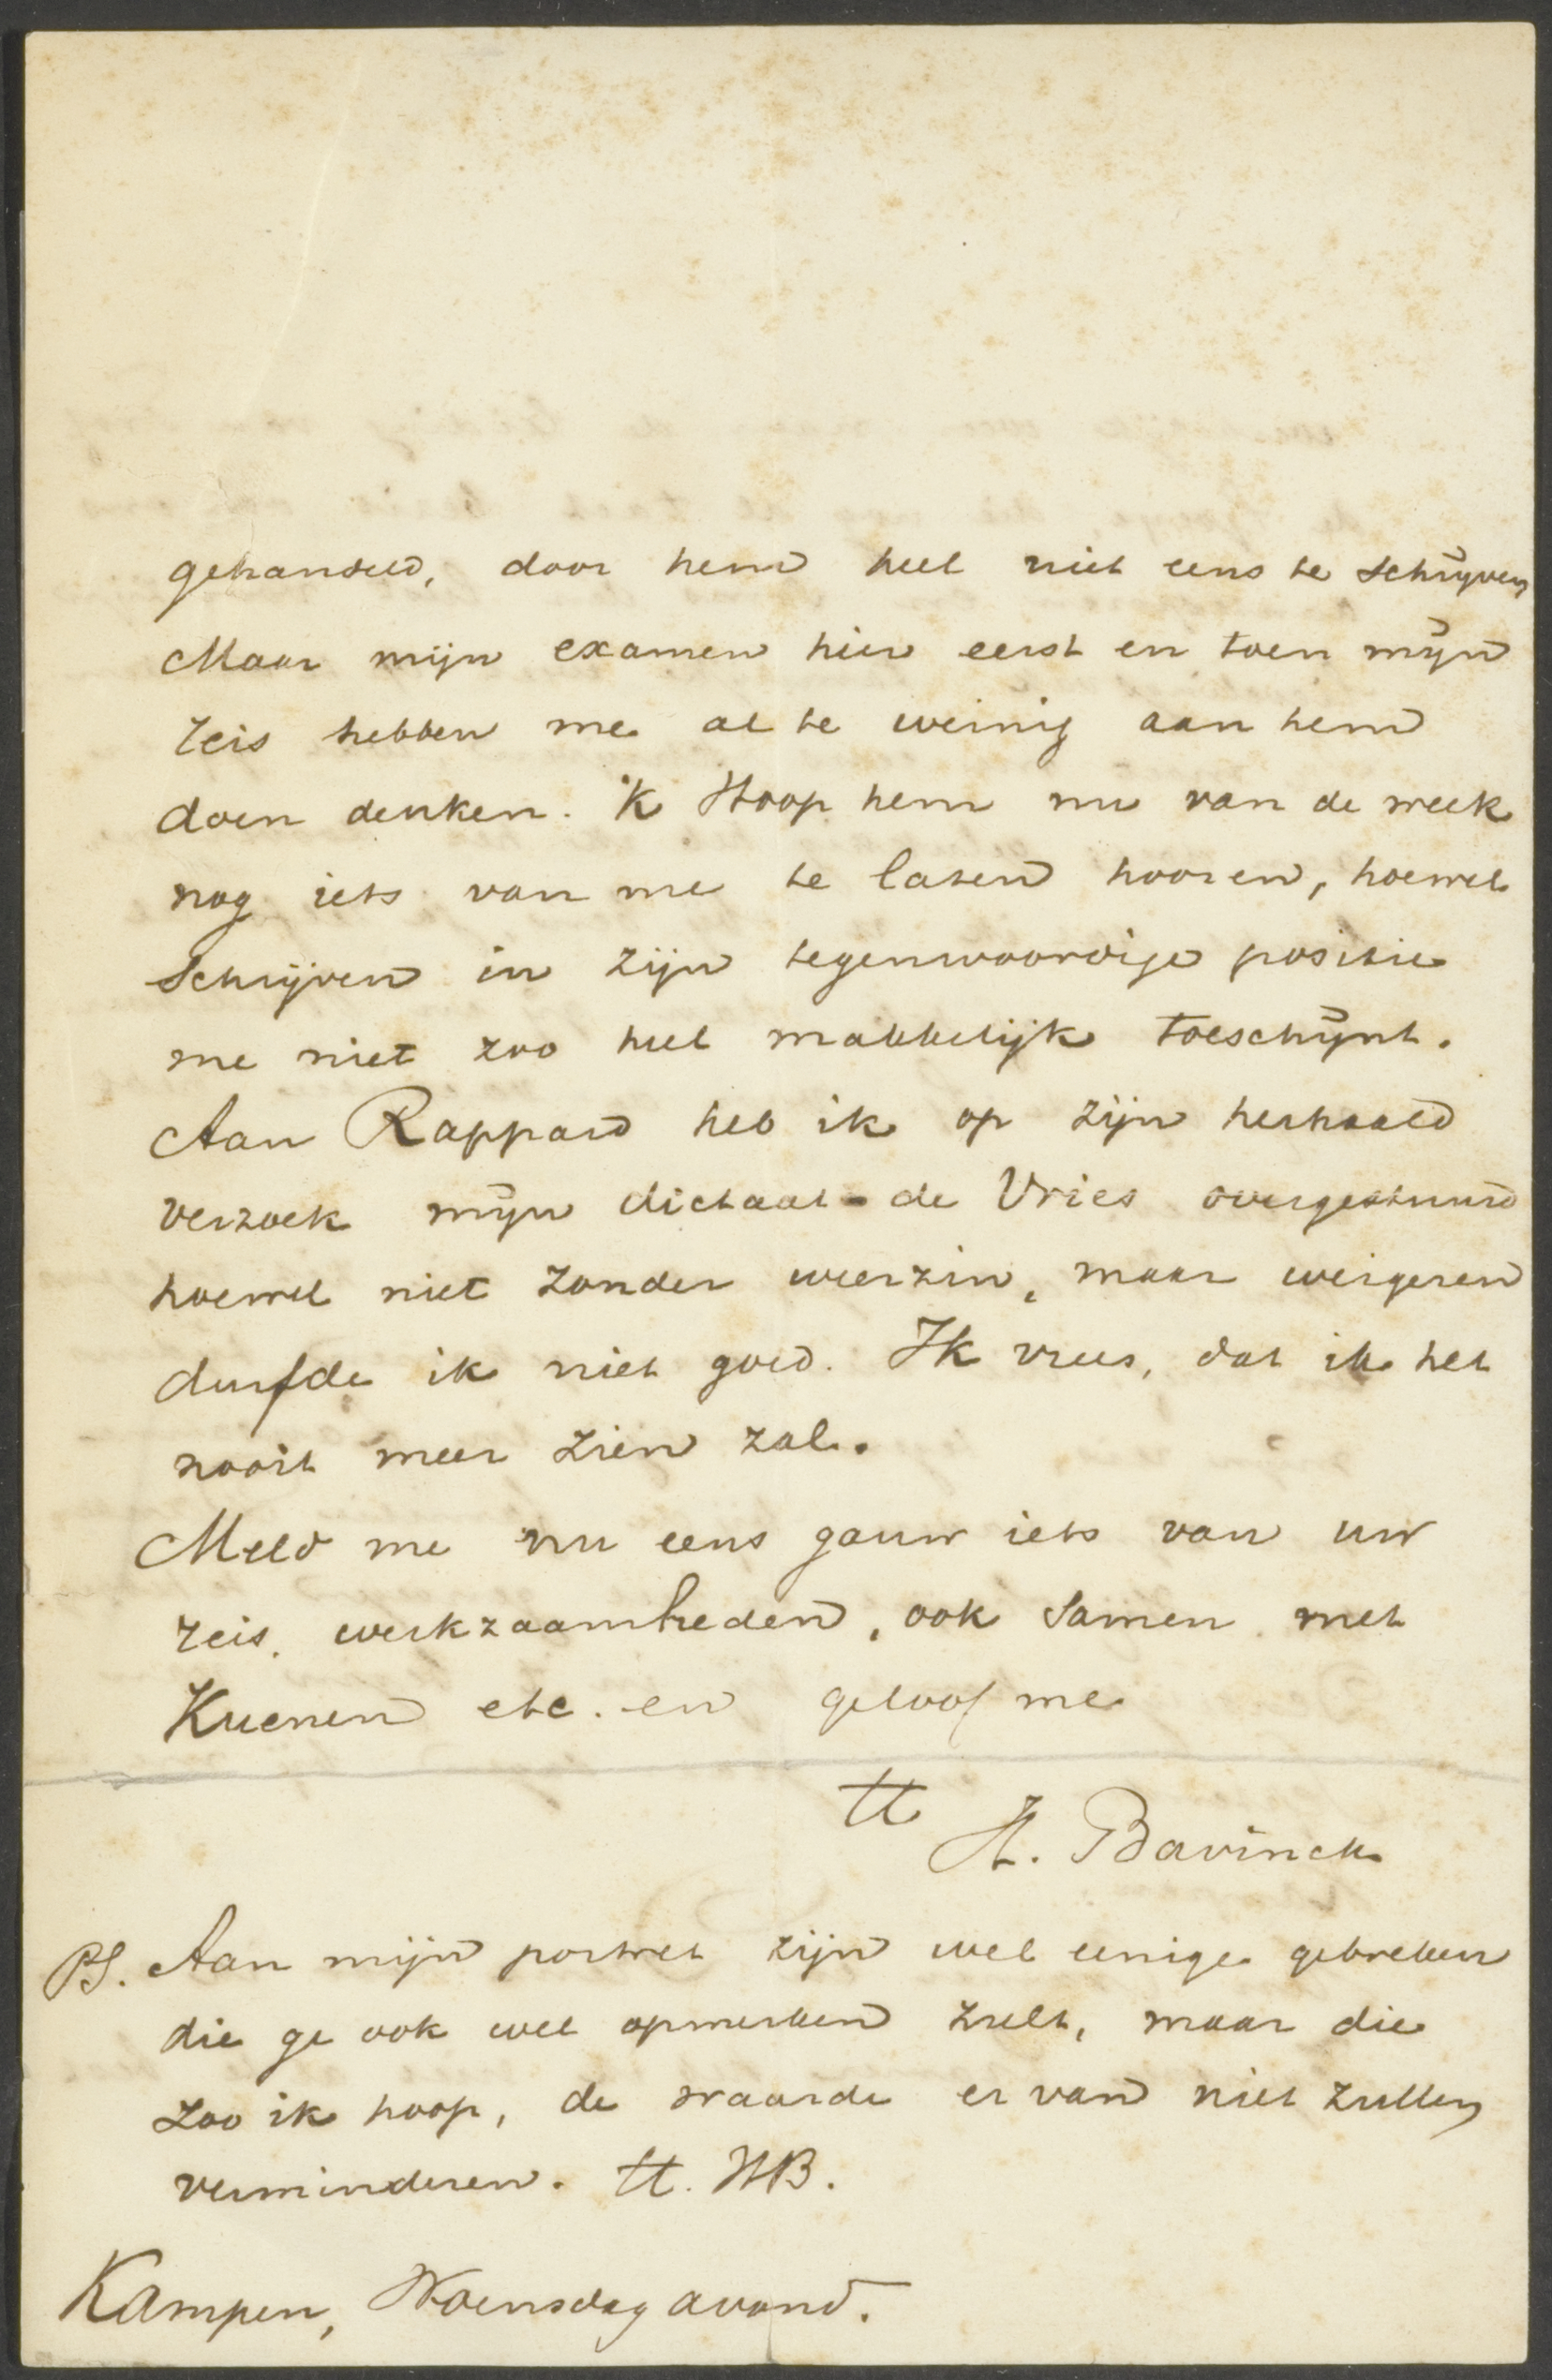 gehandeld, door hem heel niet eens te schrijven
Maar mijn examen hier eerst en toen mijn
reis hebben me al te weinig aan hem
doen denken. 'k Hoop hem nu van de week
nog iets van me te laten hooren, hoewel
schrijven in zijn tegenwoordige positie
me niet zoo heel makkelijk toeschijnt.
Aan Rappard heb ik op zijn herhaald
verzoek mijn dictaat-de Vries overgestuurd
hoewel niet zonder weerzin, maar weigeren
durfde ik niet goed. Ik vrees, dat ik het
nooit meer zien zal.
Meld me nu eens gauw iets van uw
reis, werkzaamheden, ook samen met
Kuenen etc. en geloof me
tt
H. Bavinck
PS. Aan mijn portret zijn wel eenige gebreken
die ge ook wel opmerken zult, maar die
zoo ik hoop, de waarde er van niet zullen
verminderen. tt. HB.
Kampen, Woensdag avond.